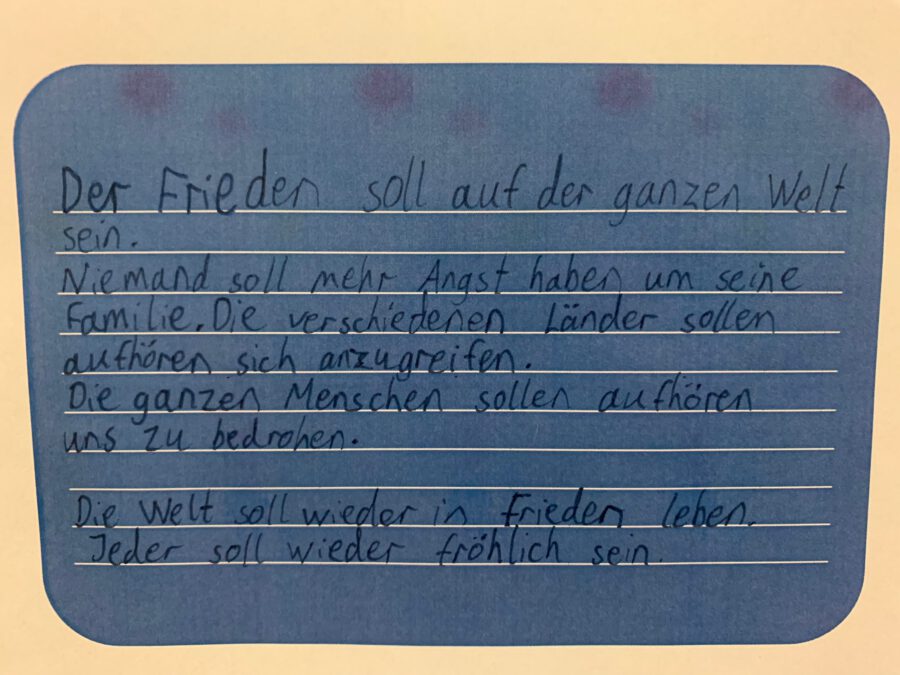 Der Frieden soll auf der ganzen Welt
sein.
Niemand soll mehr Angst haben um seine
Familie. Die verschiedenen Länder sollen
aufhören sich anzugreifen.
Die ganzen Menschen sollen aufhören
uns zu bedrohen.
Die Welt soll wieder in Frieden leben.
Jeder soll wieder fröhlich sein.